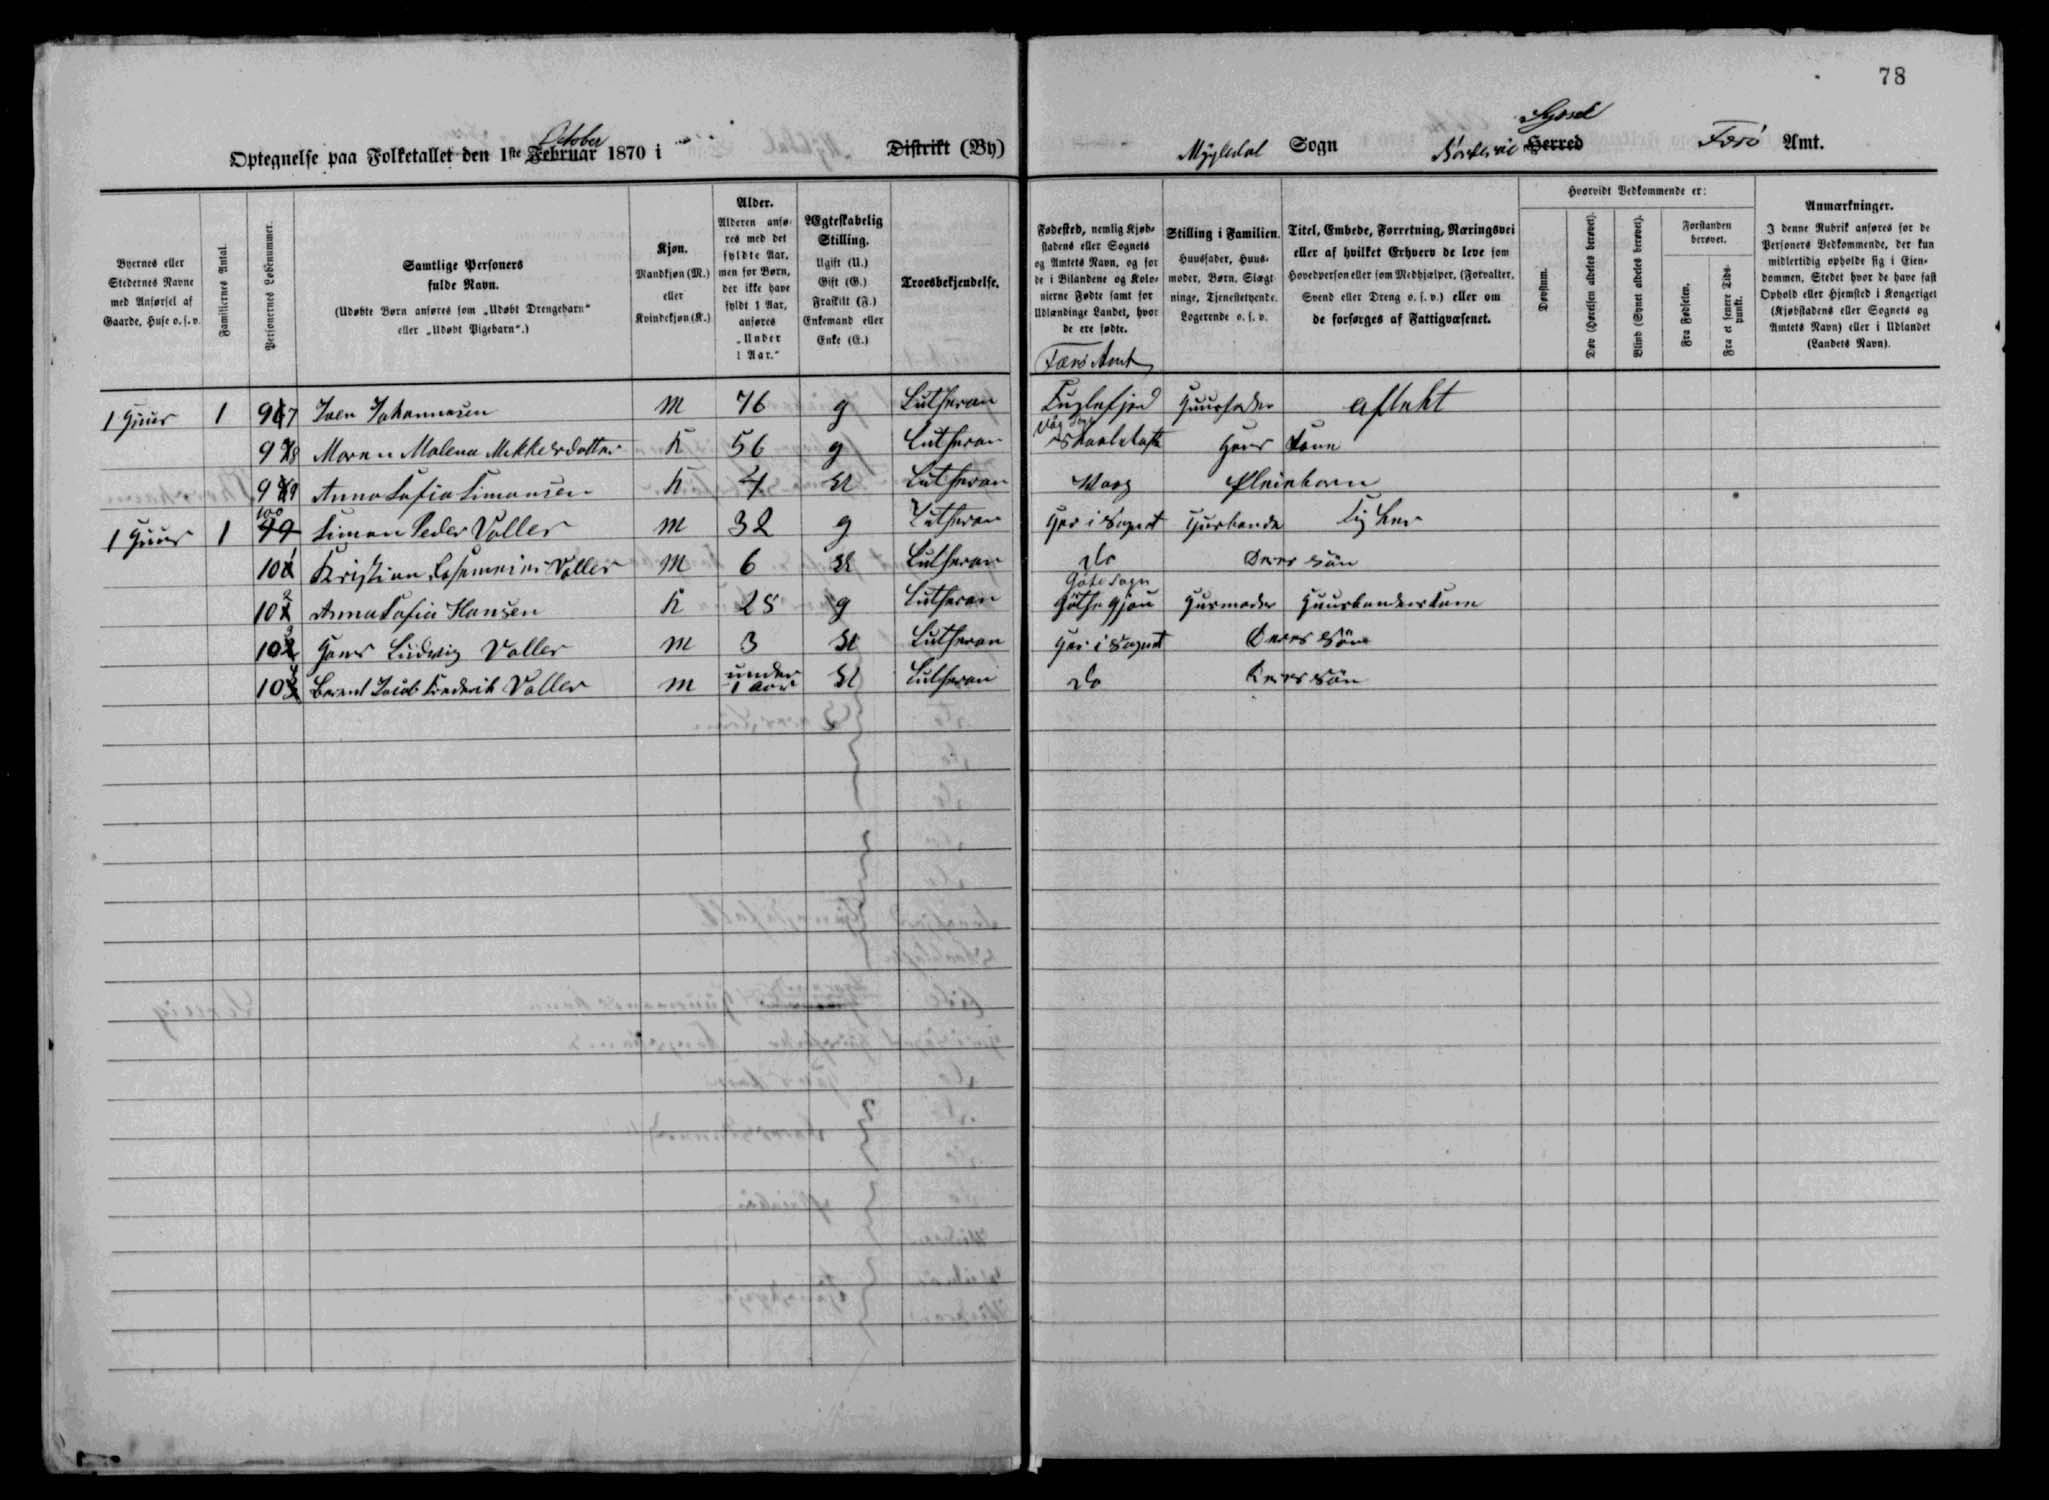 78
October
Optegnelse paa Folketallet den 1ste Februar 1870 i Distrikt (By)
Syssel
Mygledal Sogn Herred Færö Amt.
Byernes eller Stedernes Navne med Anførsel af Gaarde, Huse o. s. v.
Familiernes Antal.
Personernes Løbenummer.
Samtlige Personers fulde Navn.
(Udøbte Børn anføres som „Udøbt Drengebarn“ eller „Udøbt Pigebarn“.)
Kjøn.
Mandkjøn (M.) eller Kvindekjøn (K.)
Alder.
Alderen anføres med det fyldte Aar, men for Børn, der ikke have fyldt 1 Aar, anføres „Under 1 Aar.“
Ægteskabelig Stilling.
Ugift (U.) Gift (G.) Fraskilt (F.) Enkemand eller Enke (E.)
Troesbekjendelse.
Fødested, nemlig Kjøbstadens eller Sognets og Amtets Navn, og for de i Bilandene og Kolonierne Fødte samt for Udlændinge Landet, hvor de ere fødte.
Færö Amt
Stilling i Familien.
Huusfader, Huusmoder, Børn, Slægtninge, Tjenestetyende, Logerende o. s. v.
Titel, Embede, Forretning, Næringsvei eller af hvilket Erhverv de leve som Hovedperson eller som Medhjælper, (Forvalter, Svend eller Dreng o. s. v.) eller om de forsørges af Fattigvæsenet.
Hvorvidt Vedkommende er:
Døvstum.
Døv (Hørelsen aldeles berøvet).
Blind (Synet aldeles berøvet).
Forstanden berøvet.
Fra Fødselen.
Fra et senere Tidspunkt.
Anmærkninger.
I denne Rubrik anføres for de Personers Vedkommende, der kun midlertidig opholde sig i Eiendommen, Stedet hvor de have fast Ophold eller Hjemsted i Kongeriget (Kjøbstadens eller Sognets og Amtets Navn) eller i Udlandet (Landets Navn).
1 Huus 1 97 Joen Johannesen M 76 g Lutheran Fuglefjord Huusfader aflekt
98 Maren Malena Mikkelsdatter K 56 g Lutheran Hans Kone
99 Anna Sofia Simonsen K 4 U Lutheran Waag Pleiebarn
1 Huus 1 100 Simon Peder Voller M 32 g Lutheran Her i Sognet Husbonde Fisker
101 Kristian Voller M 6 U Lutheran do Deres Sön
Göte Sogn
102 Anna Sofia Hansen K 28 g Lutheran Göthegjou Husmoder Huusbondens Kone
103 Hans Ludvig Voller M 3 U Lutheran Her i Sognet Deres Sön
104 Berent Jacob Frederik Voller M under 1 Aar U Lutheran do Deres Sön